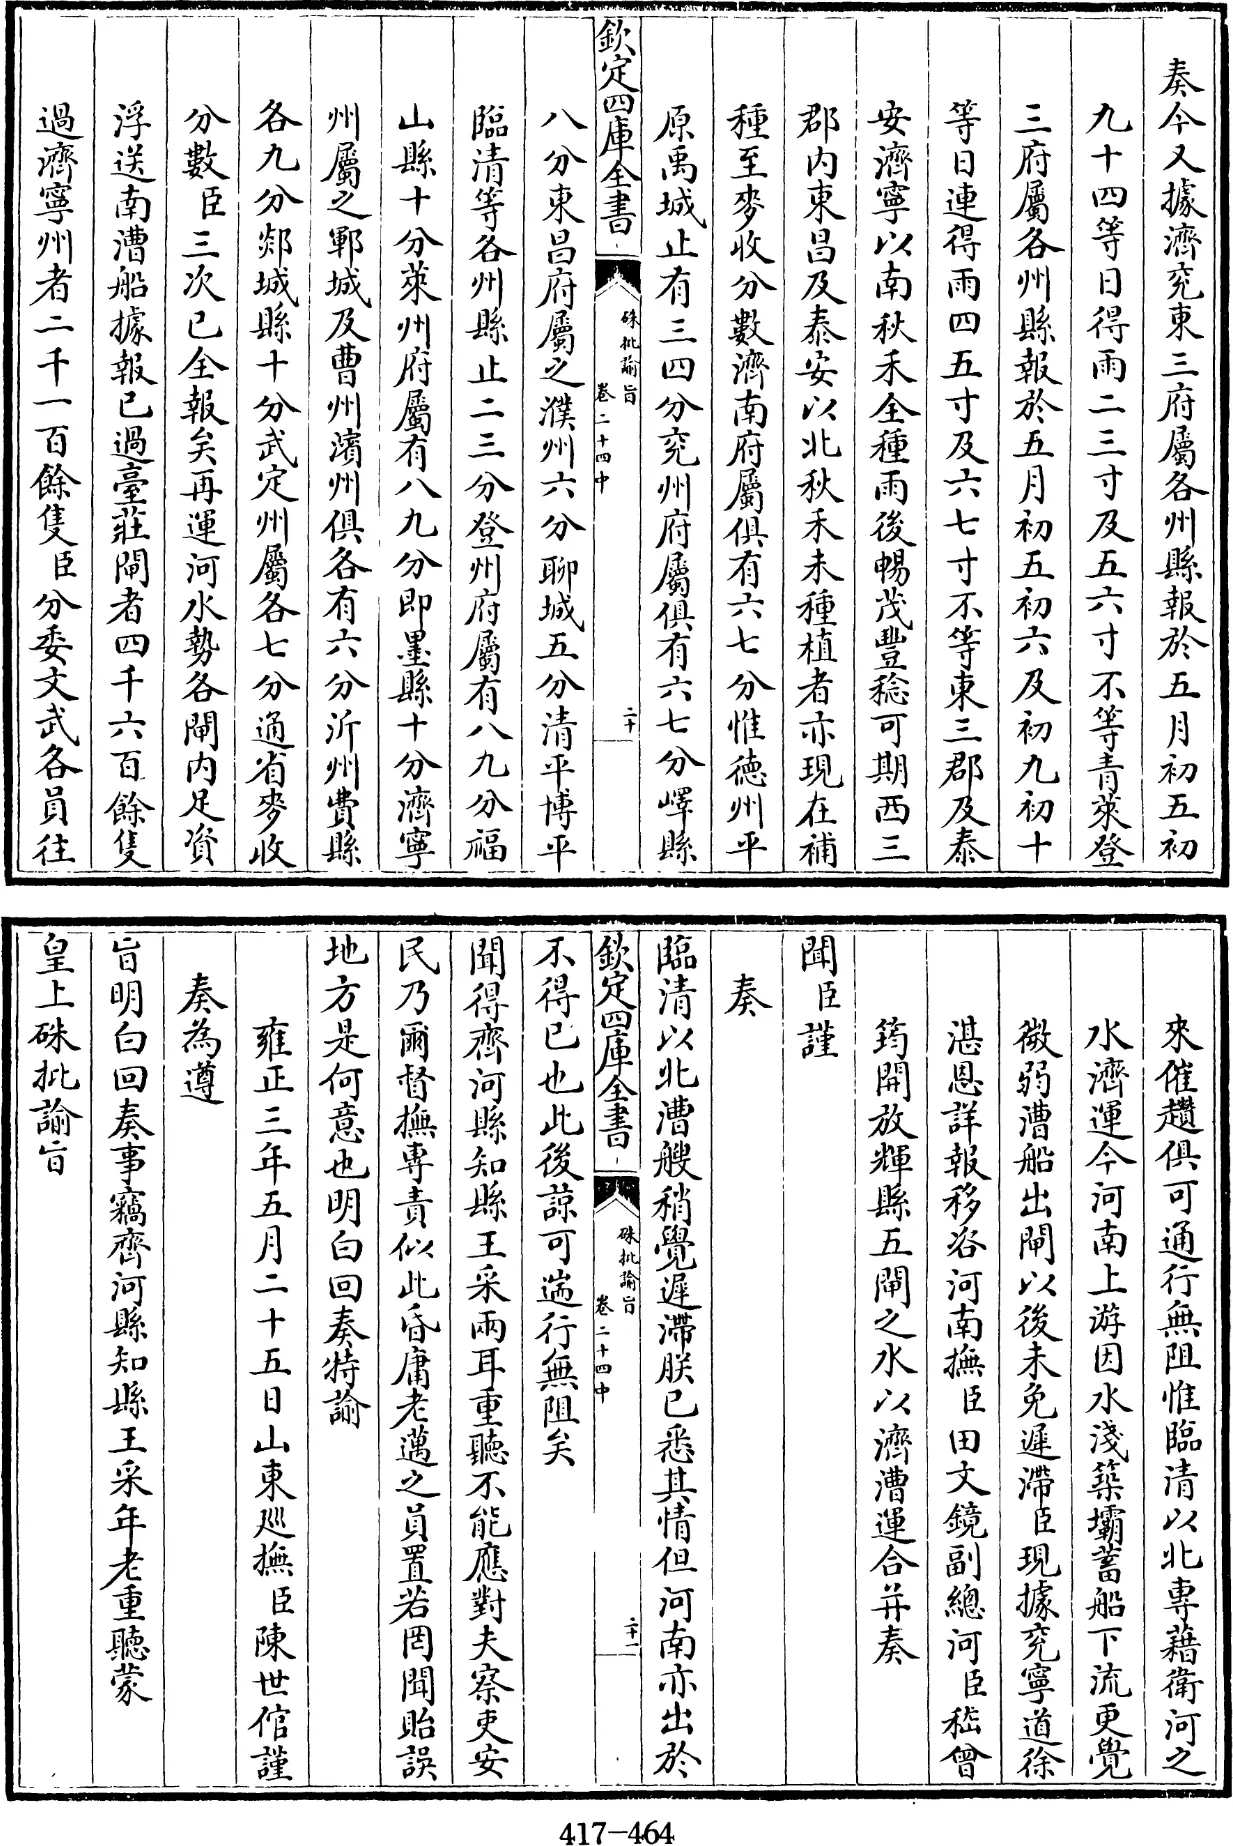 奏今又據濟兖東三府屬各州縣報於五月初五初
九十四等日得雨二三寸及五六寸不等青萊登
三府屬各州縣報於五月初五初六及初九初十
等日連得雨四五寸及六七寸不等東三郡及泰
安濟寧以南秋禾全種雨後暢茂豐稔可期西三
郡内東昌及泰安以北秋禾未種植者亦現在補
種至麥收分數濟南府屬俱有六七分惟德州平
原禹城止有三四分兖州府屬俱有六七分嶧縣
欽定四庫全書
硃批諭旨
卷二十四中
二十
八分東昌府屬之濮州六分聊城五分清平博平
臨清等各州縣止二三分登州府屬有八九分福
山縣十分萊州府屬有八九分即墨縣十分濟寧
州屬之鄆城及曹州濱州俱各有六分沂州費縣
各九分郯城縣十分武定州屬各七分通省麥收
分數臣三次已全報矣再運河水勢各閘内足資
浮送南漕船據報已過臺莊閘者四千六百餘隻
過濟寧州者二千一百餘隻臣分委文武各員往
來催趲俱可通行無阻惟臨清以北專藉衛河之
水濟運今河南上游因水淺築壩蓄船下流更覺
微弱漕船出閘以後未免遲滯臣現據兖寧道徐
湛恩詳報移咨河南撫臣田文鏡副總河臣嵇曾
筠開放輝縣五閘之水以濟漕運合并奏
聞臣謹
奏
臨清以北漕艘稍覺遲滯朕已悉其情但河南亦出於
欽定四庫全書
硃批諭旨
卷二十四中
二十一
不得已也此後諒可遄行無阻矣
聞得齊河縣知縣王采兩耳重聽不能應對夫察吏安
民乃爾督撫專責似此昏庸老邁之員置若罔聞貽誤
地方是何意也明白回奏特諭
雍正三年五月二十五日山東廵撫臣陳世倌謹
奏為遵
旨明白回奏事竊齊河縣知縣王采年老重聽蒙
皇上硃批諭旨
417-464